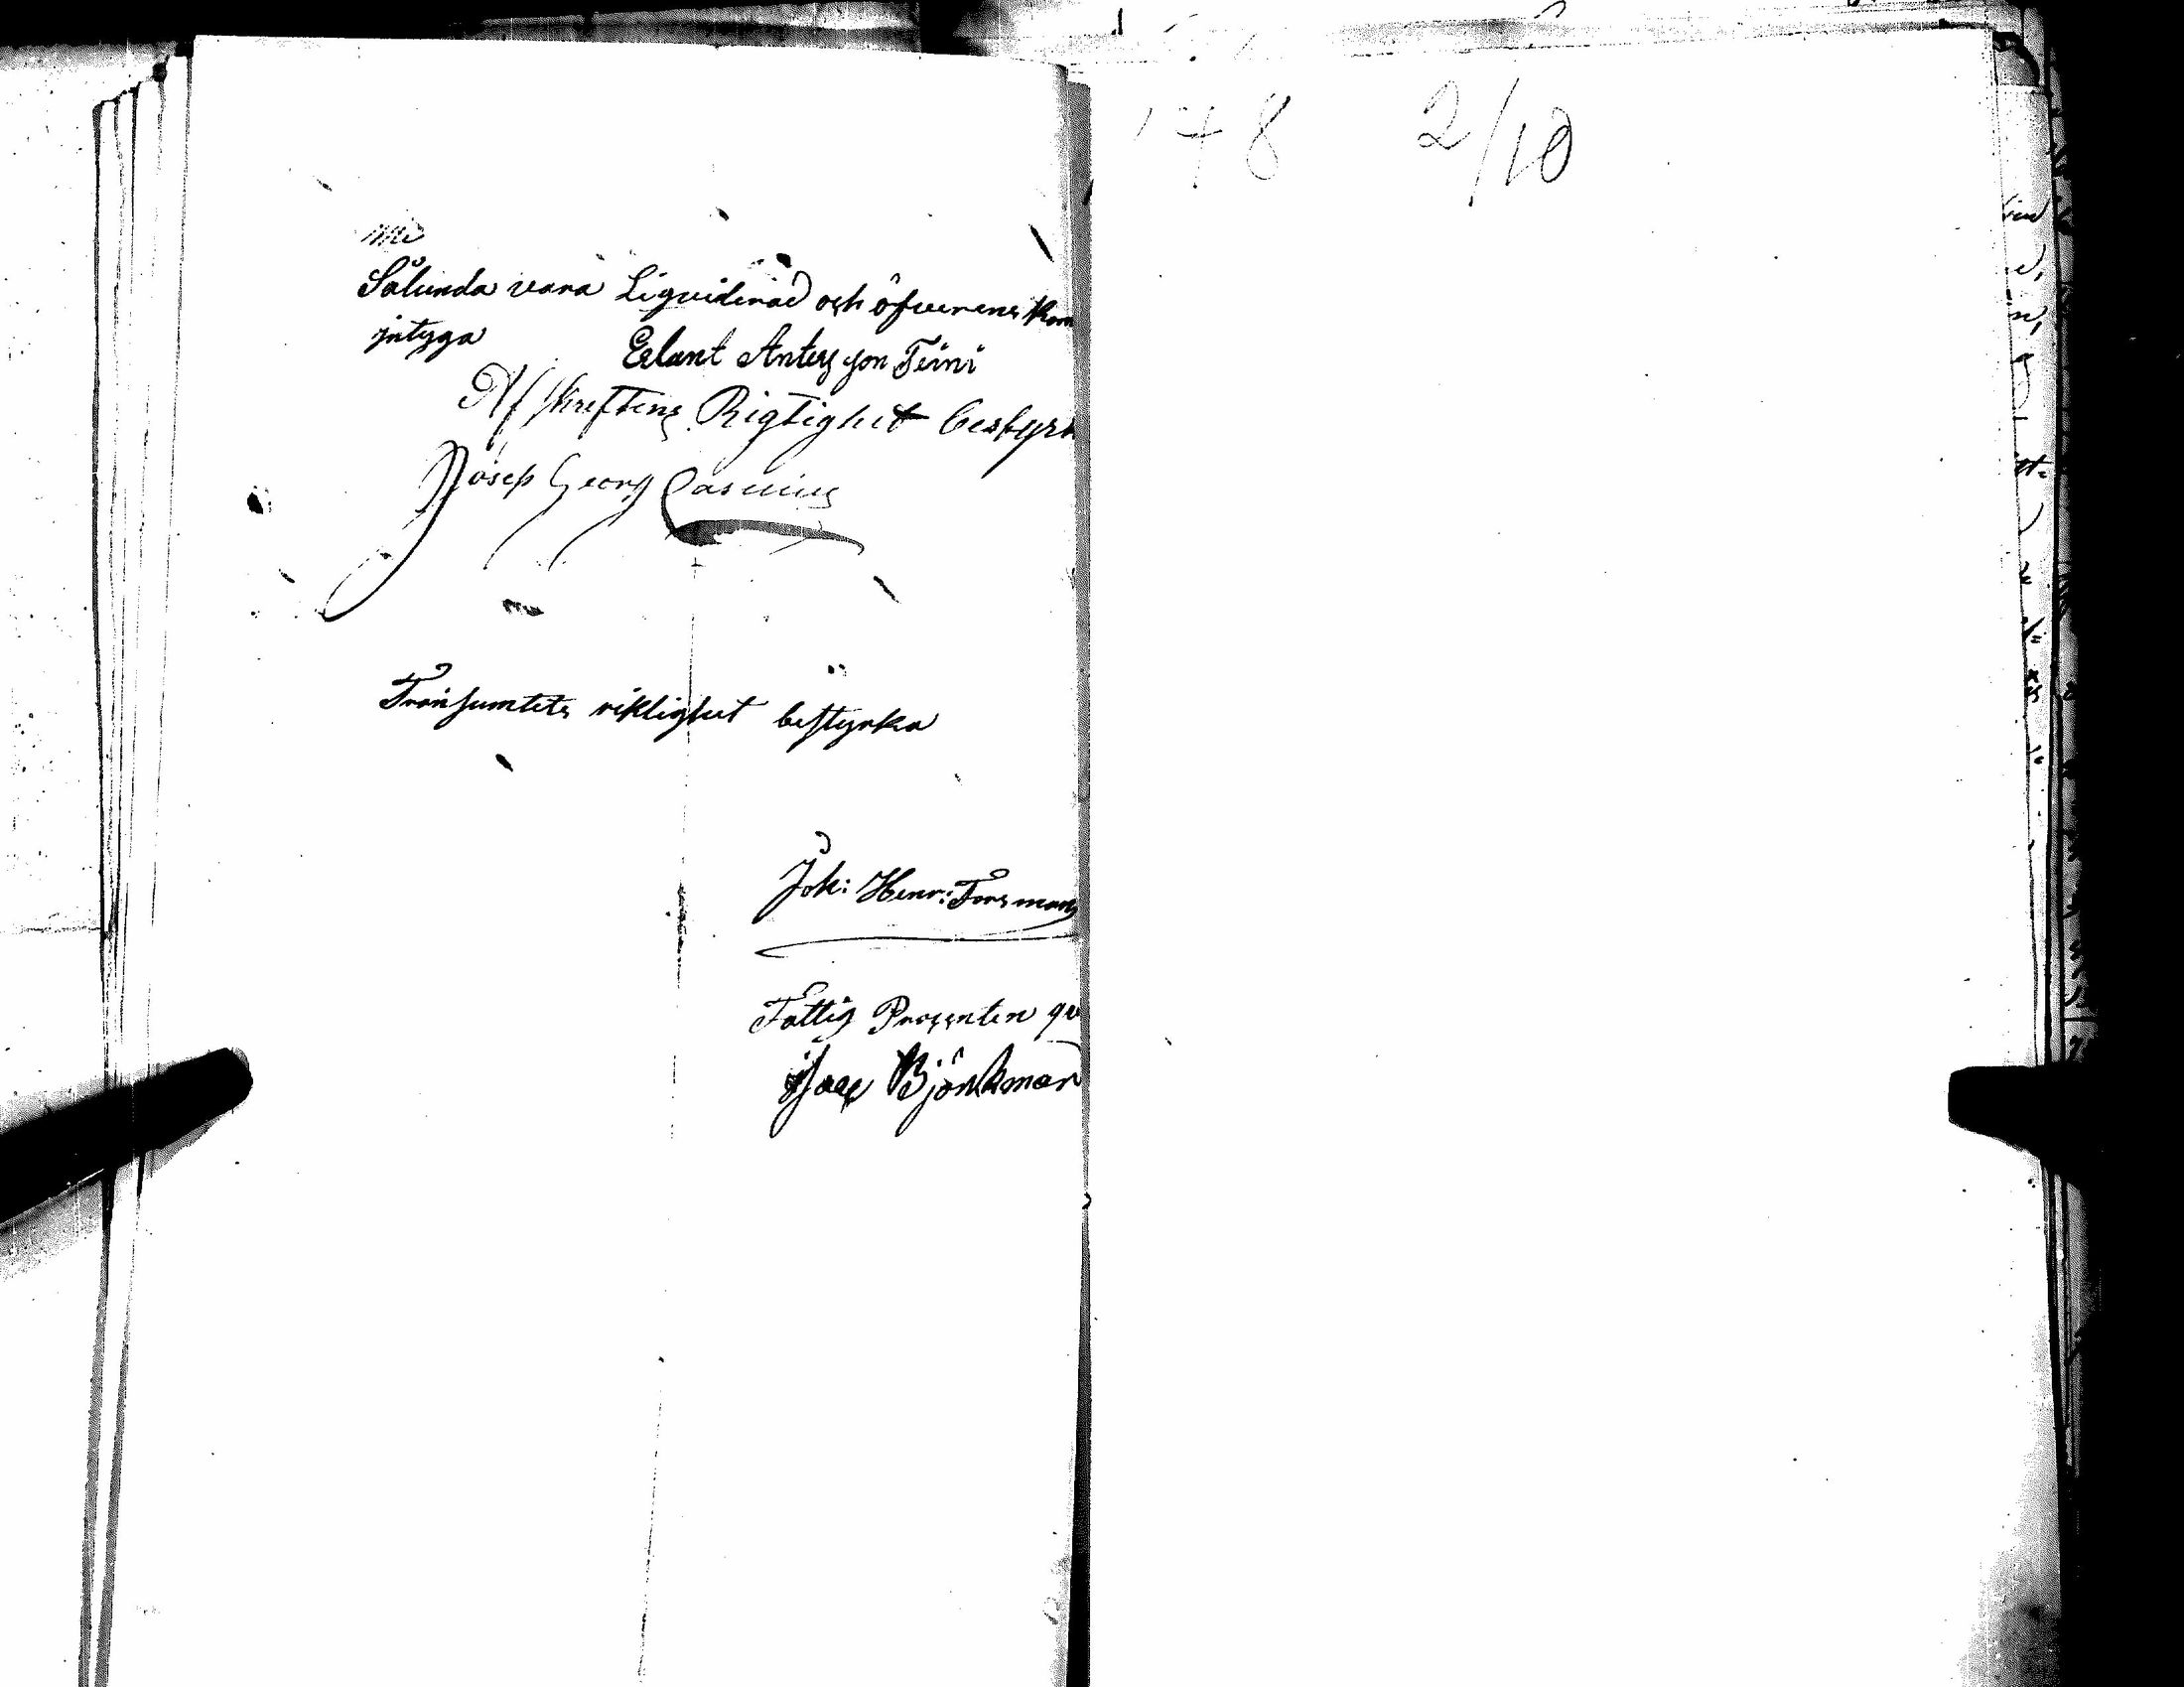 Sålunda vara Liqviderad och öfverens kom
intyga
Erlant Anders son Teini
Afskriftens Rigtighet bestyrk
Josep Georg Casenius
Transumtets riktighet bestyrka
Joh: Henr: Forsman
Fattig Procenten
Isac Björkman
2/10